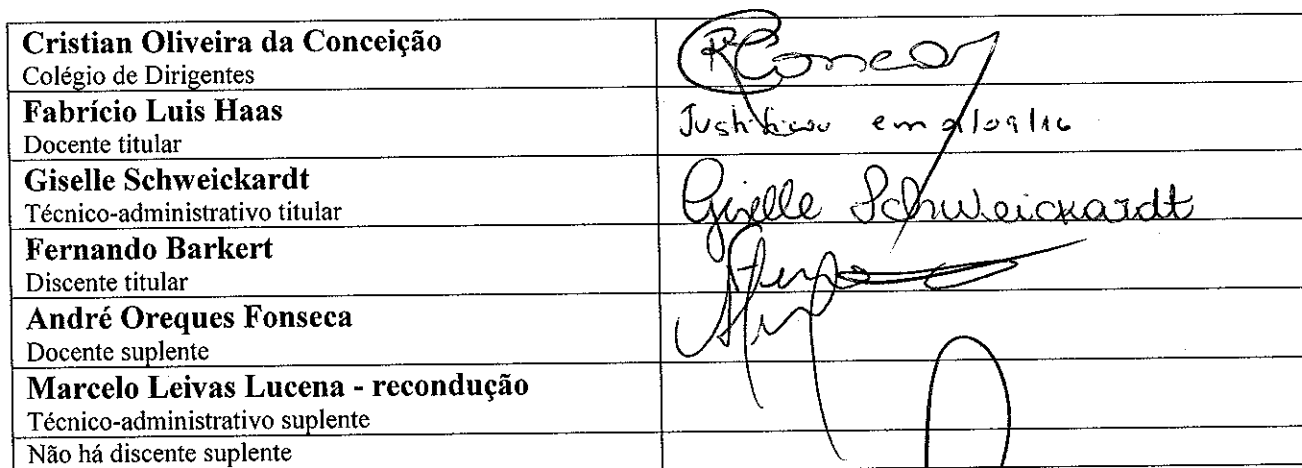 Cristian Oliveira da Conceição
Colégio de Dirigentes
Fabrício Luis Haas
Justificou em /09/16
Docente titular
Giselle Schweickardt
Giselle Schweickardt
Técnico-administrativo titular
Fernando Barkert
Discente titular
André Oreques Fonseca
Docente suplente
Marcelo Leivas Lucena - recondução
Técnico-administrativo suplente
Não há discente suplente